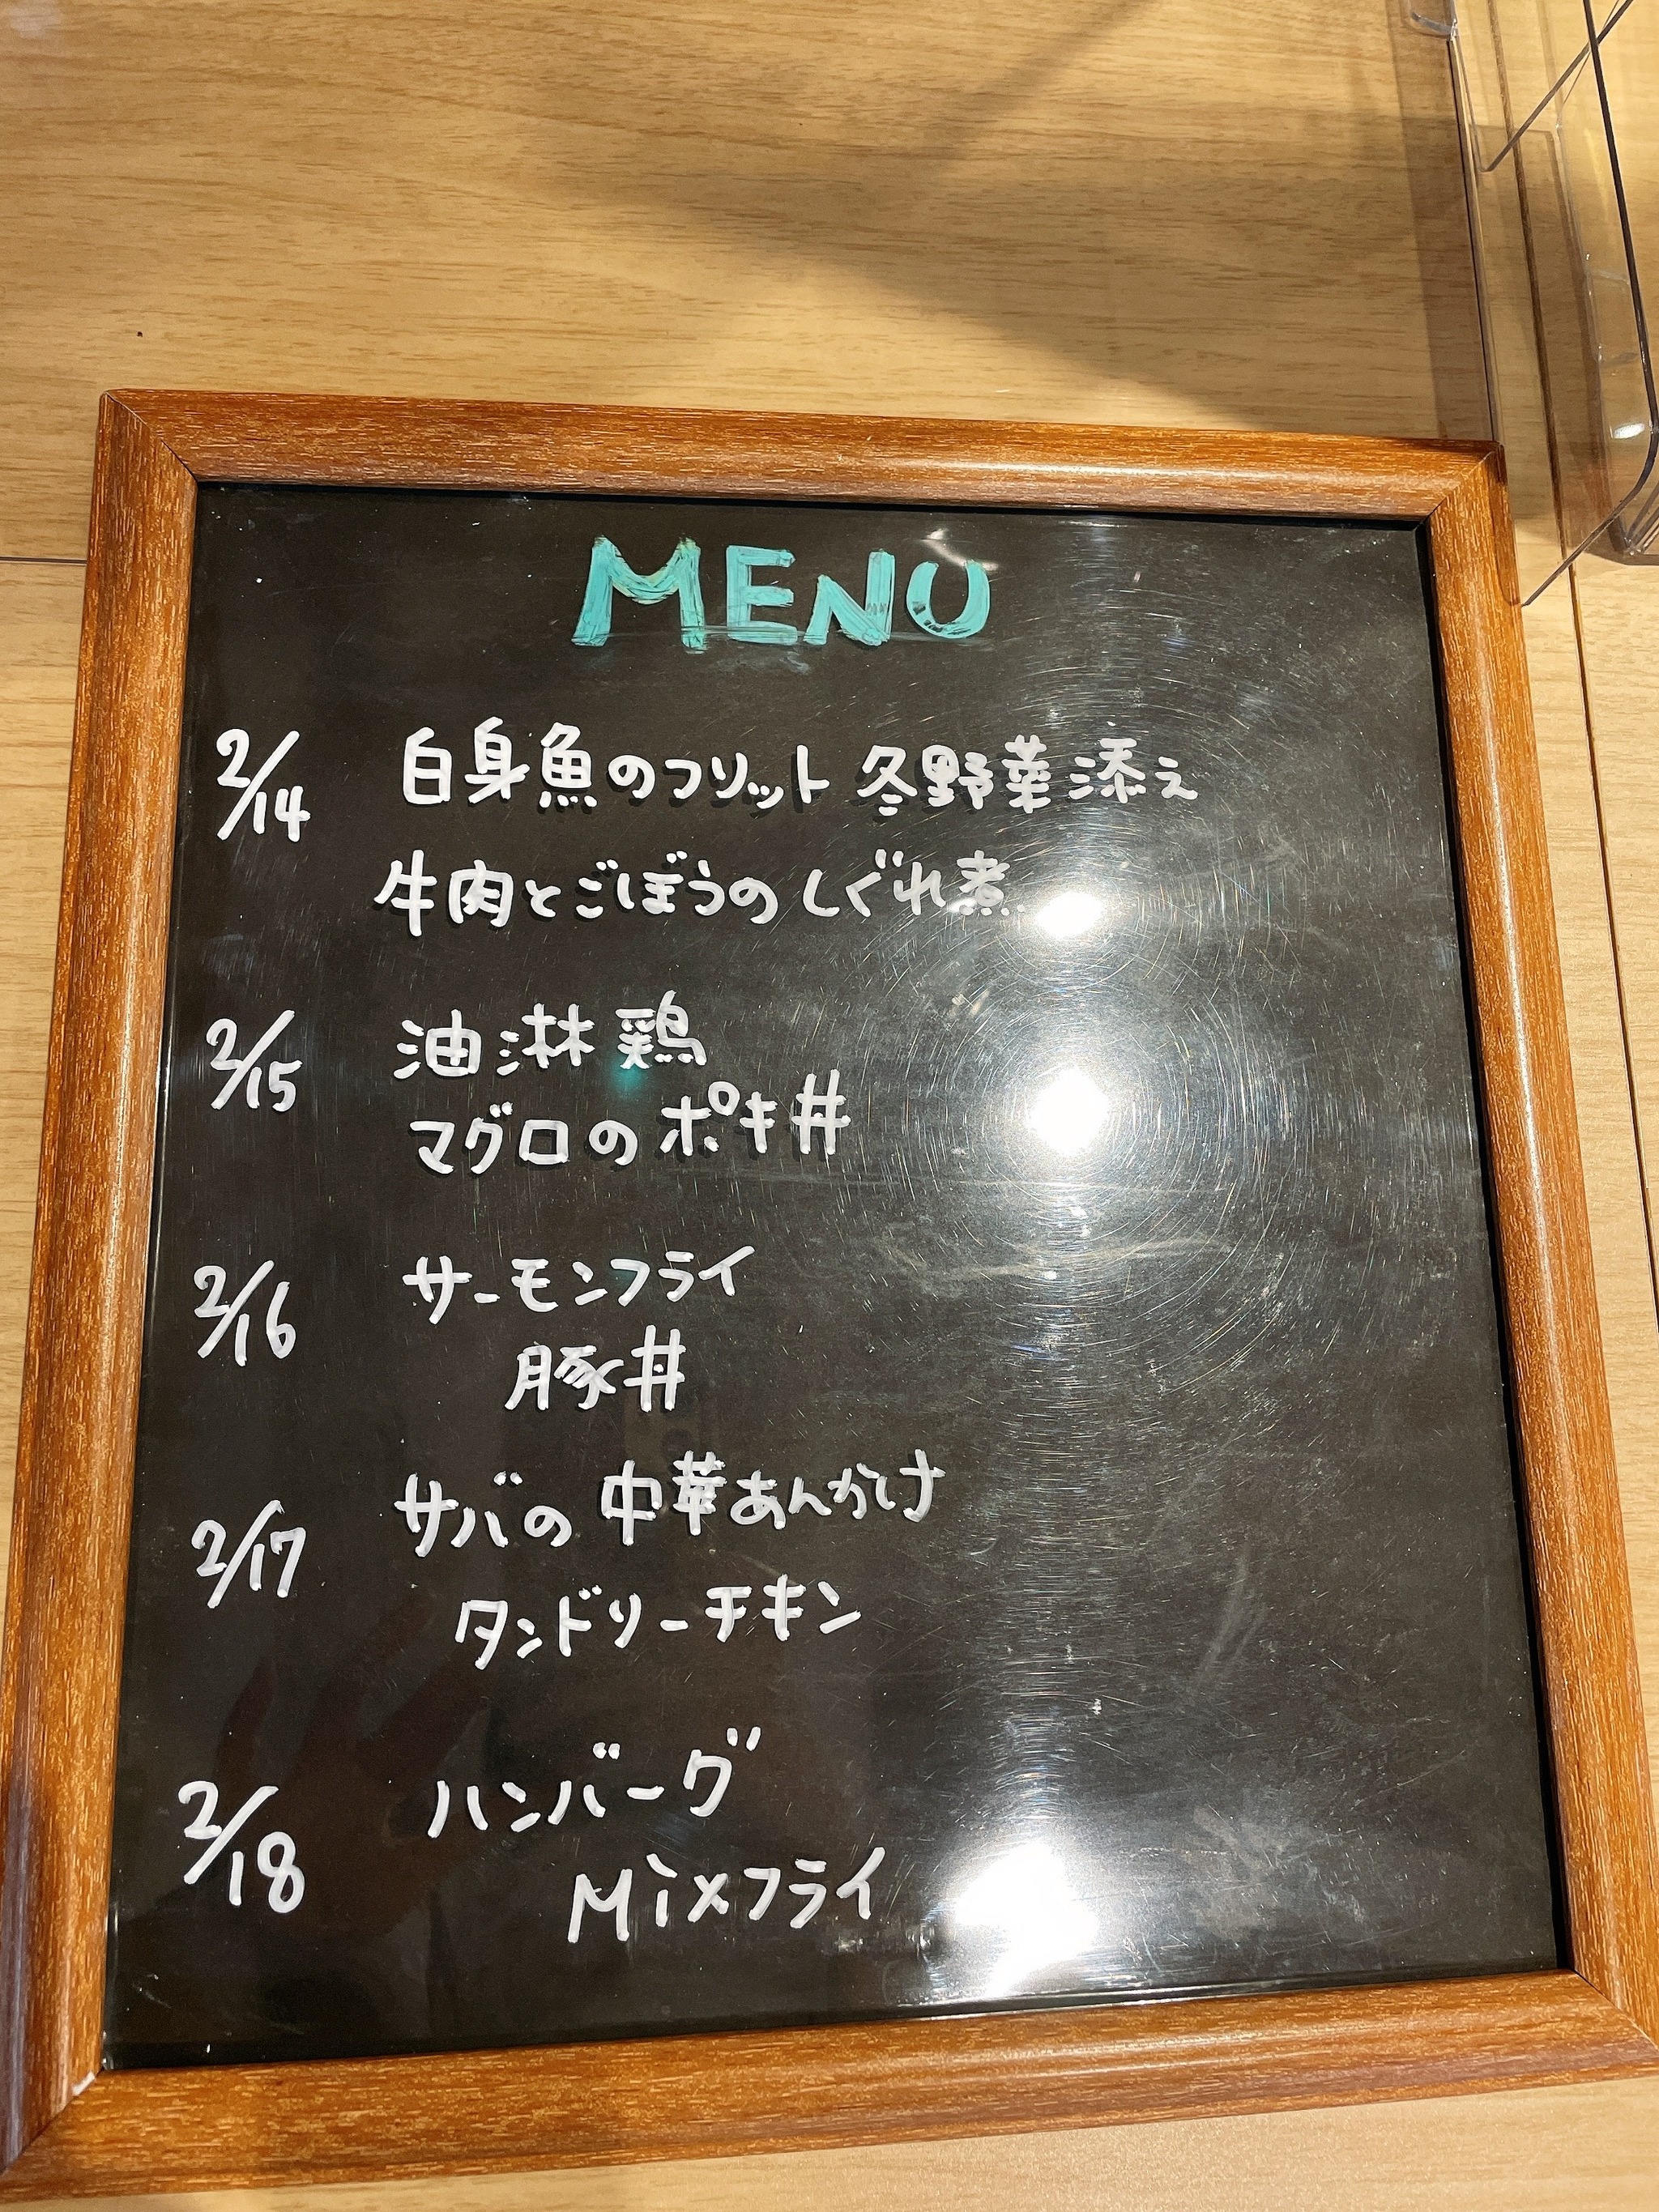 MENU
2/14 白身魚のフリット 冬野菜添え
牛肉とごぼうのしぐれ煮
2/15 油淋鶏
マグロのポキ丼
2/16 サーモンフライ
豚丼
2/17 サバの中華あんかけ
タンドリーチキン
2/18 ハンバーグ
Mixフライ